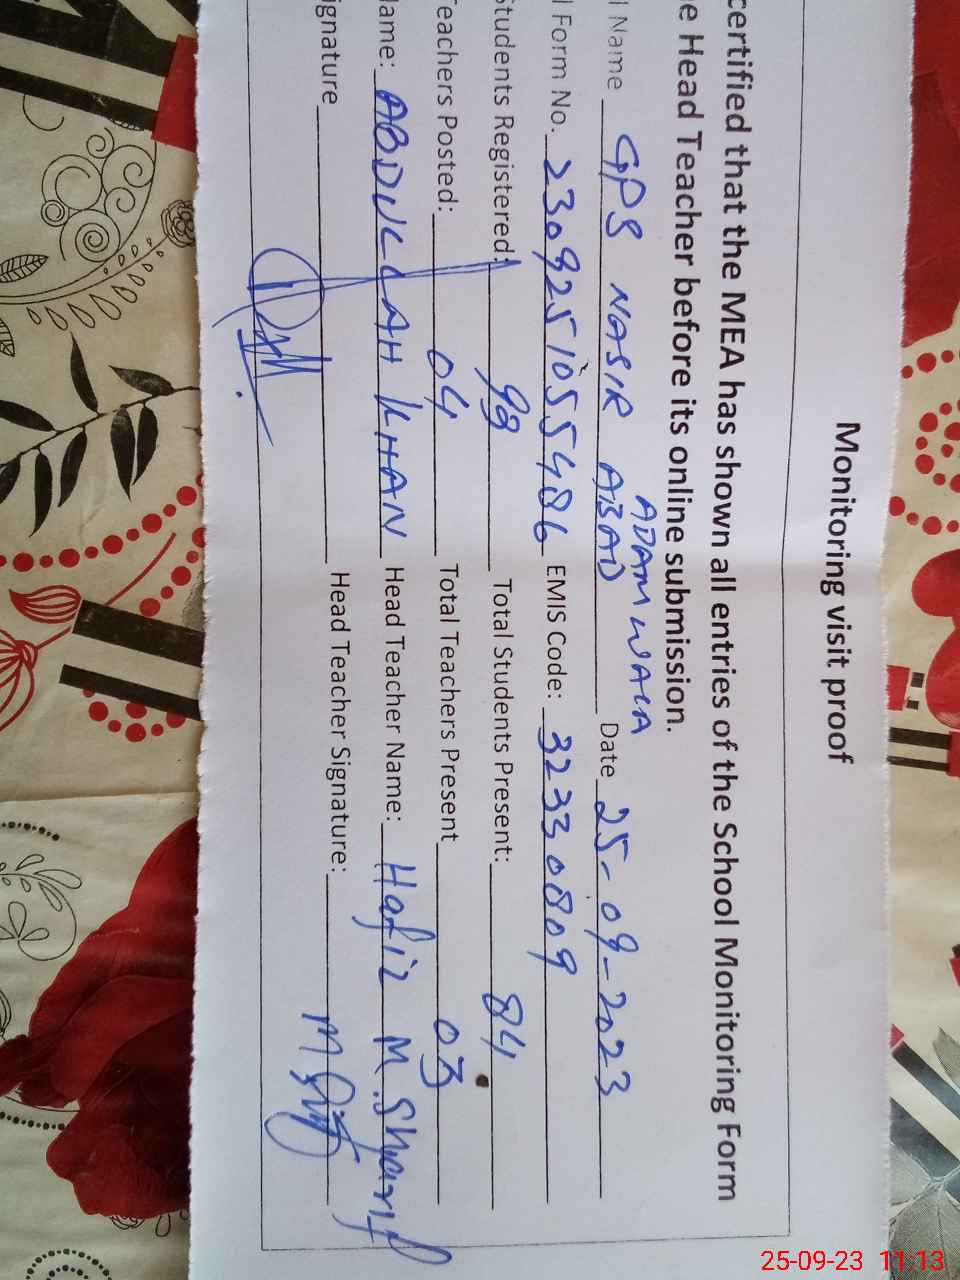 Monitoring visit proof
certified that the MEA has shown all entries of the School Monitoring Form
e Head Teacher before its online submission.
l Name GPS NASIR ABAD ADAM WALA Date 25-09-2023
l Form No. 2309251055486 EMIS Code: 32330809
Students Registered: 99 Total Students Present: 84
Teachers Posted: 04 Total Teachers Present 03
Name: ABDULLAH KHAN Head Teacher Name: Hafiz M. Sharif
ignature Head Teacher Signature:
25-09-23 11:13